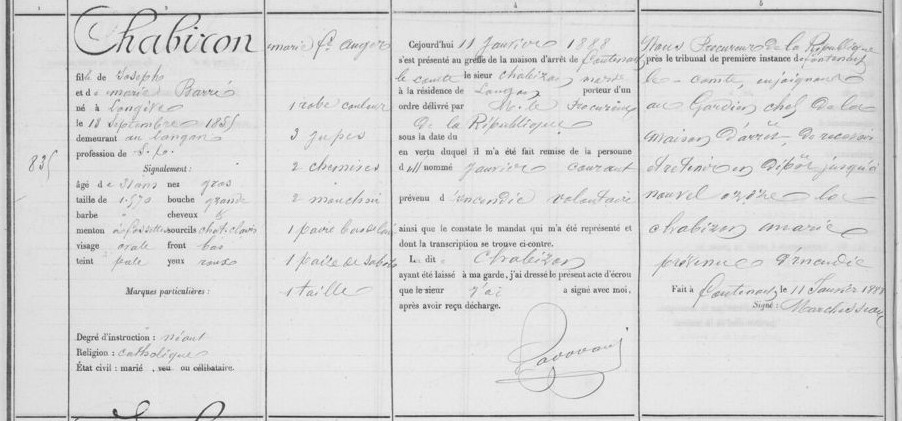 835
Chabiron
fille de Joseph
et de marie Barré
né à Longève
le 18 Septembre 1855
demeurant au Langon
profession de
Signalement :
âgé de 31 ans nez gros
taille de 1.570 bouche grande
barbe cheveux
menton à fossette sourcils chat. clairs
visage ovale front bas
teint pale yeux roux
Marques particulières :
Degré d'instruction : néant
Religion : catholique
État civil : marié, veuf ou célibataire.
marie fe auger
1 robe couleur
3 jupes
2 chemises
2 mouchoir
1 paire bas de laine
1 paire de sabots
1 taille
Cejourd'hui 11 Janvier 1888
s'est présenté au greffe de la maison d'arrêt de fontenay
le comte le sieur chabizon
à la résidence de Langon porteur d'un
ordre délivré par Mr le Procureur
de la République
sous la date du
en vertu duquel il m'a été fait remise de la personne
d'll nommé Janvier courant
prévenu d'incendie volontaire
ainsi que constate le mandat qui m'a été représenté et
dont la transcription se trouve ci-contre.
La dit Chabizon
ayant été laissé à ma garde, j'ai dressé le présent acte d'écrou
que le sieur j'ai a signé avec moi,
après avoir reçu décharge.
Nous Procureur de la République
près le tribunal de première instance de fontenay
le-comte, enjoignons
au Gardien chef de la
maison d'arrêt, de recevoir
et retenir en dépôt jusqu'à
nouvel ordre la
chabizon marie
prévenue d'incendie
Fait à fontenay le 11 Janvier 1888
Signé :